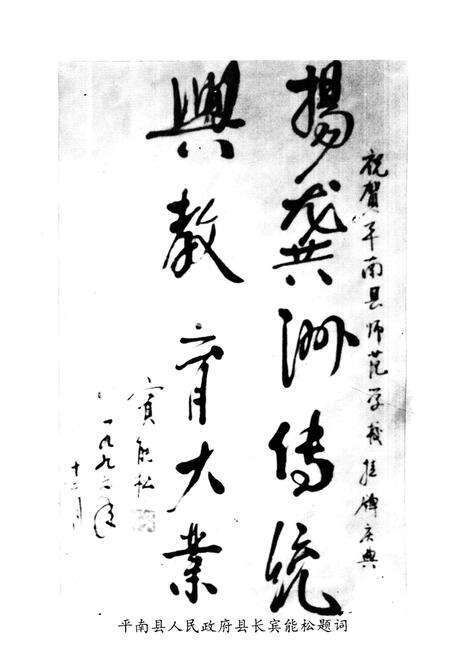 祝贺平南县师范学校挂牌庆典
揚龚洲传统
興教育大業
宾能松
一九九二年
十二月
平南县人民政府县长宾能松题词